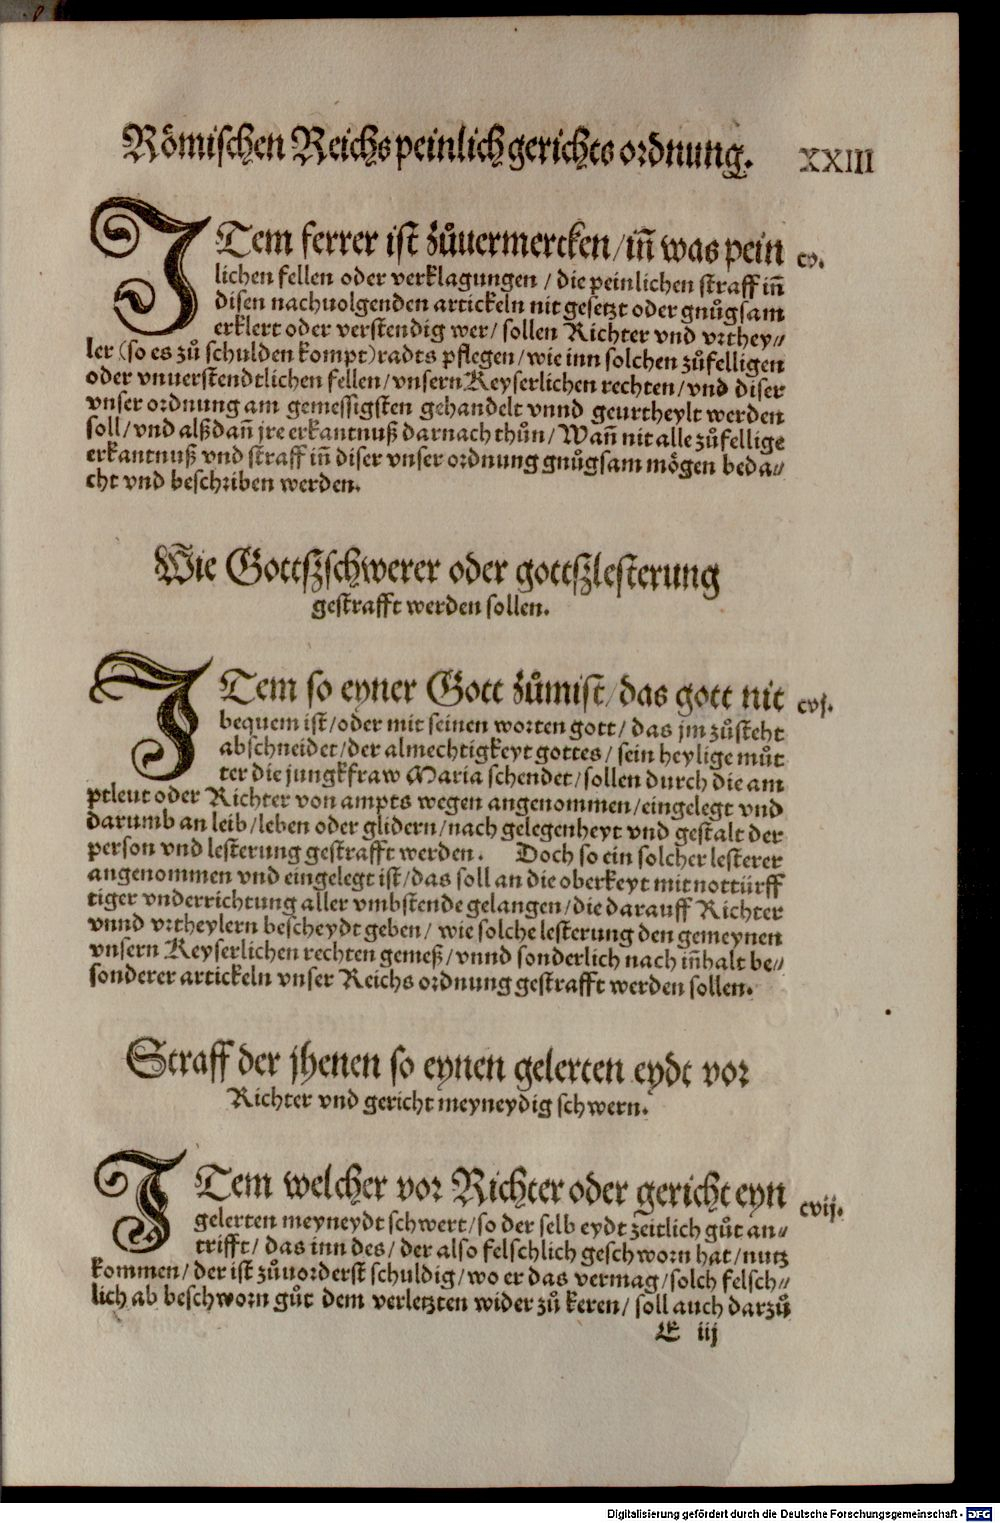 Römischen Reichs peinlich gerichts ordnung. XXIII
ITem ferrer ist zůuermercken/ iñ was pein cv.
lichen fellen oder verklagungen / die peinlichen straff iñ
disen nachuolgenden artickeln nit gesetzt oder gnůgsam
erklert oder verstendig wer/ sollen Richter vnd vrthey⸗
ler (so es zů schulden kompt) radts pflegen/ wie inn solchen zůfelligen
oder vnuerstendtlichen fellen/ vnsern Keyserlichen rechten/ vnd diser
vnser ordnung am gemessigsten gehandelt vnnd geurtheylt werden
soll/ vnd alßdañ jre erkantnuß darnach thůn/ Wañ nit alle zůfellige
erkantnuß vnd straff iñ diser vnser ordnung gnůgsam mögen beda⸗
cht vnd beschriben werden.
Wie Gottßschwerer oder gottßlesterung
gestrafft werden sollen.
ITem so eyner Gott zůmist/ das gott nit cvj.
bequem ist/ oder mit seinen worten gott/ das jm zůsteht
abschneidet/ der almechtigkeyt gottes/ sein heylige můt
ter die jungkfraw Maria schendet/ sollen durch die am
ptleut oder Richter von ampts wegen angenommen/ eingelegt vnd
darumb an leib/ leben oder glidern/ nach gelegenheyt vnd gestalt der
person vnd lesterung gestrafft werden. Doch so ein solcher lesterer
angenommen vnd eingelegt ist/ das soll an die oberkeyt mit nottürff
tiger vnderrichtung aller vmbstende gelangen/ die darauff Richter
vnnd vrtheylern bescheydt geben/ wie solche lesterung den gemeynen
vnsern Keyserlichen rechten gemeß/ vnnd sonderlich nach iñhalt be⸗
sonderer artickeln vnser Reichs ordnung gestrafft werden sollen.
Straff der jhenen so eynen gelerten eydt vor
Richter vnd gericht meyneydig schwern.
ITem welcher vor Richter oder gericht eyn cvij.
gelerten meyneydt schwert/ so der selb eydt zeitlich gůt an⸗
trifft/ das inn des/ der also felschlich geschworn hat/ nutz
kommen/ der ist zůuorderst schuldig/ wo er das vermag/ solch felsch⸗
lich ab beschworn gůt dem verletzten wider zů keren/ soll auch darzů
E iij
Digitalisierung gefördert durch die Deutsche Forschungsgemeinschaft - DFG